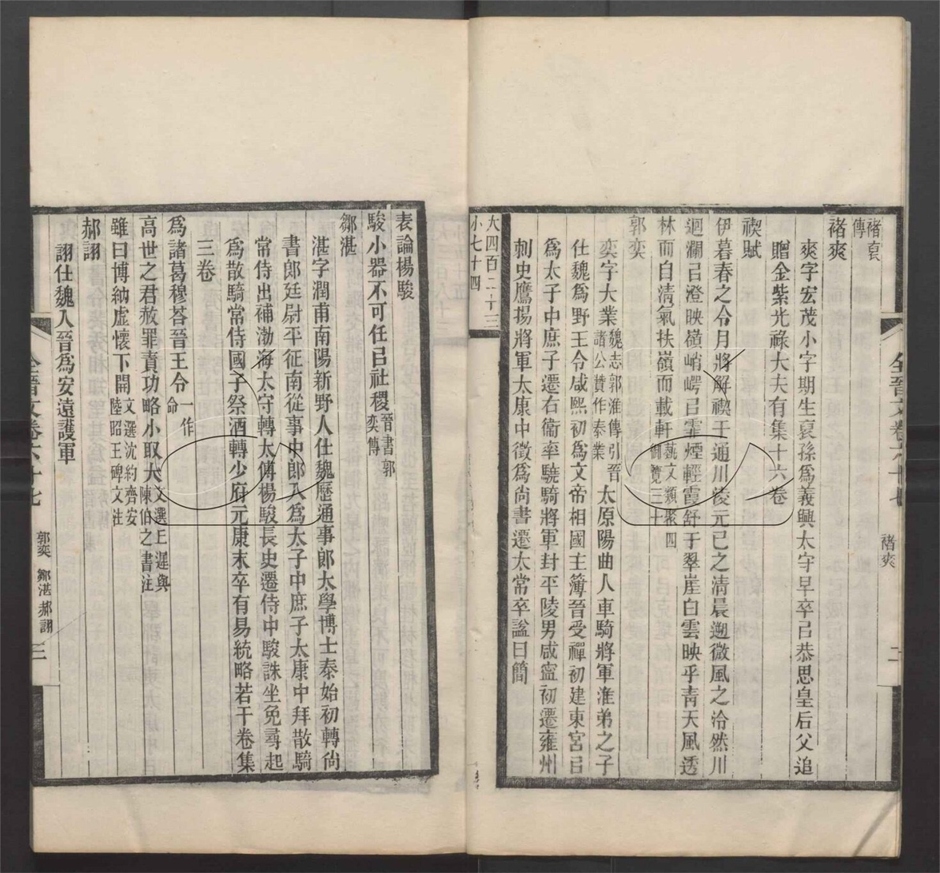 褚裒
傳
褚爽
爽字宏茂小字期生裒孫爲義興太守早卒㠯恭思皇后父追
贈金紫光祿大夫有集十六卷
禊賦
伊暮春之令月將解禊于通川淩元巳之清晨遡微風之泠然川
迴瀾㠯澄映嶺峭崿㠯霏煙輕霞舒于翠崖白雲映乎青天風透
林而自清氣扶嶺而載軒藝文類聚四
御覽三十
郭奕
奕字大業魏志郭淮傳引晉
諸公贊作泰業太原陽曲人車騎將軍淮弟之子
仕魏爲野王令咸熙初爲文帝相國主簿晉受禪初建東宮㠯
爲太子中庶子遷右衞率驍騎將軍封平陵男咸寍初遷雍州
刺史鷹揚將軍太康中徵爲尚書遷太常卒諡曰簡
大四百二十三
小七十四
全晉文卷六十七
褚爽
二
表論楊駿
駿小器不可任㠯社稷晉書郭
奕傳
鄒湛
湛字潤甫南陽新野人仕魏歷通事郎太學博士泰始初轉尚
書郎廷尉平征南從事中郎入爲太子中庶子太康中拜散騎
常侍出補渤海太守轉太傅楊駿長史遷侍中駿誅坐免尋起
爲散騎常侍國子祭酒轉少府元康末卒有易統略若干卷集
三卷
爲諸葛穆荅晉王令一作
命
高世之君赦罪責功略小取大文選丘遲與
陳伯之書注
雖曰博納虛懷下開文選沈約齊安
陸昭王碑文注
郝詡
詡仕魏入晉爲安遠護軍
全晉文卷六十七
郭奕 鄒湛 郝詡
三